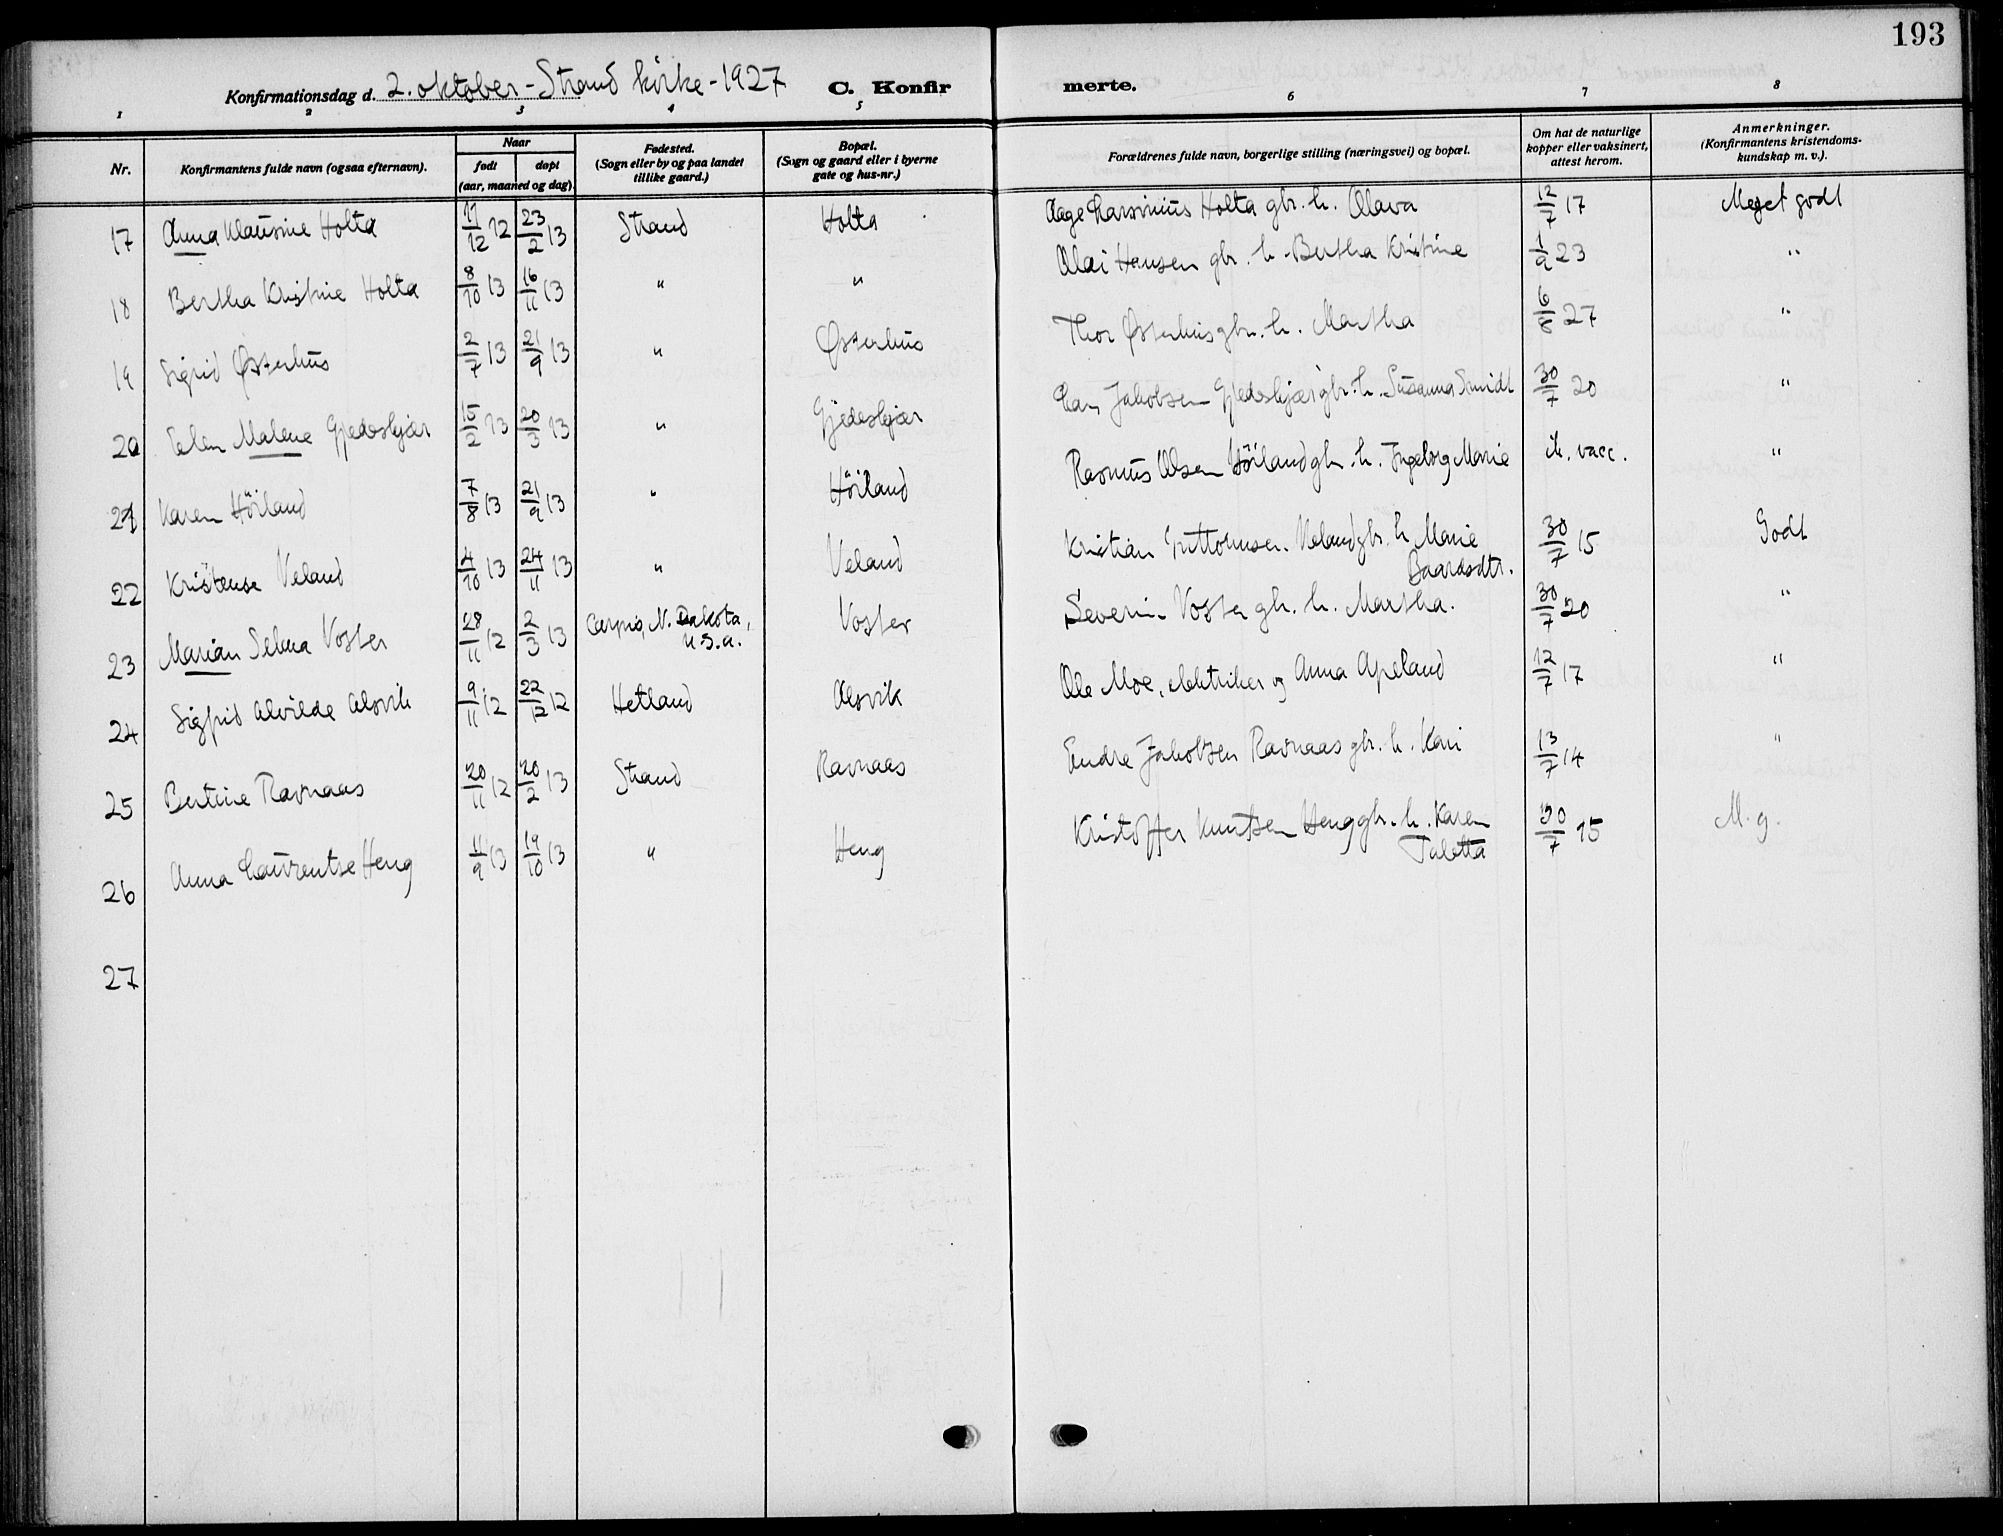 193
Konfirmationsdag d. 2. oktober - Strand kirke - 1927 C. Konfir merte.
1 2 3 4 5 6 7 8
Nr. Konfirmantens fulde navn (ogsaa efternavn). Naar født døpt (aar, maaned og dag). Fødested. (Sogn eller by og paa landet tillike gaard.) Bopæl. (Sogn og gaard eller i byerne gate og hus-nr.) Forældrenes fulde navn, borgerlige stilling (næringsvei) og bopæl. Om hat de naturlige kopper eller vaksinert, attest herom. Anmerkninger. (Konfirmantens kristendoms-kundskap m. v.).
17 Anna Klausine Holta 11/12 12 23/2 13 Strand Holta Aage Larsinius Holta gbr. h. Olava 12/7 17 Meget godt
18 Bertha Kristine Holta 8/10 13 16/11 13 " " Olai Hansen gbr. h. Bertha Kristine 1/9 23 "
19 Sigrid Østerhus 2/7 13 21/9 13 " Østerhus Thor Østerhus gbr. h. Martha 6/8 27 "
20 Elen Malene Gjedeskjær 15/2 13 20/3 13 " Gjedeskjær Lars Jakobsen Gjedeskjær gbr. h. Susanna Smidt 30/7 20 "
21 Karen Höiland 7/8 13 21/9 13 " Höiland Rasmus Olsen Höiland gbr. h. Ingeborg Marie ik. vacc. "
22 Kristense Veland 4/10 13 24/11 13 " Veland Kristian Guttormsen Veland gbr. h. Marie Baardsdtr. 30/7 15 Godt
23 Marian Selma Voster 28/11 12 2/3 13 Carpio, N. Dakota, U.S.A. Voster Severin Voster gbr. h. Martha. 30/7 20 "
24 Sigfrid Alvilde Alsvik 9/11 12 22/12 12 Hetland Alsvik Ole Moe, elektriker og Anna Apeland 12/7 17 "
25 Bertine Ravnaas 20/11 12 20/2 13 Strand Ravnaas Endre Jakobsen Ravnaas gbr. h. Kari 13/7 14 "
26 Anna Laurentse Heng 11/9 13 19/10 13 " Heng Kristoffer Knutsen Heng gbr. h. Karen Taletta 30/7 15 M. g.
27